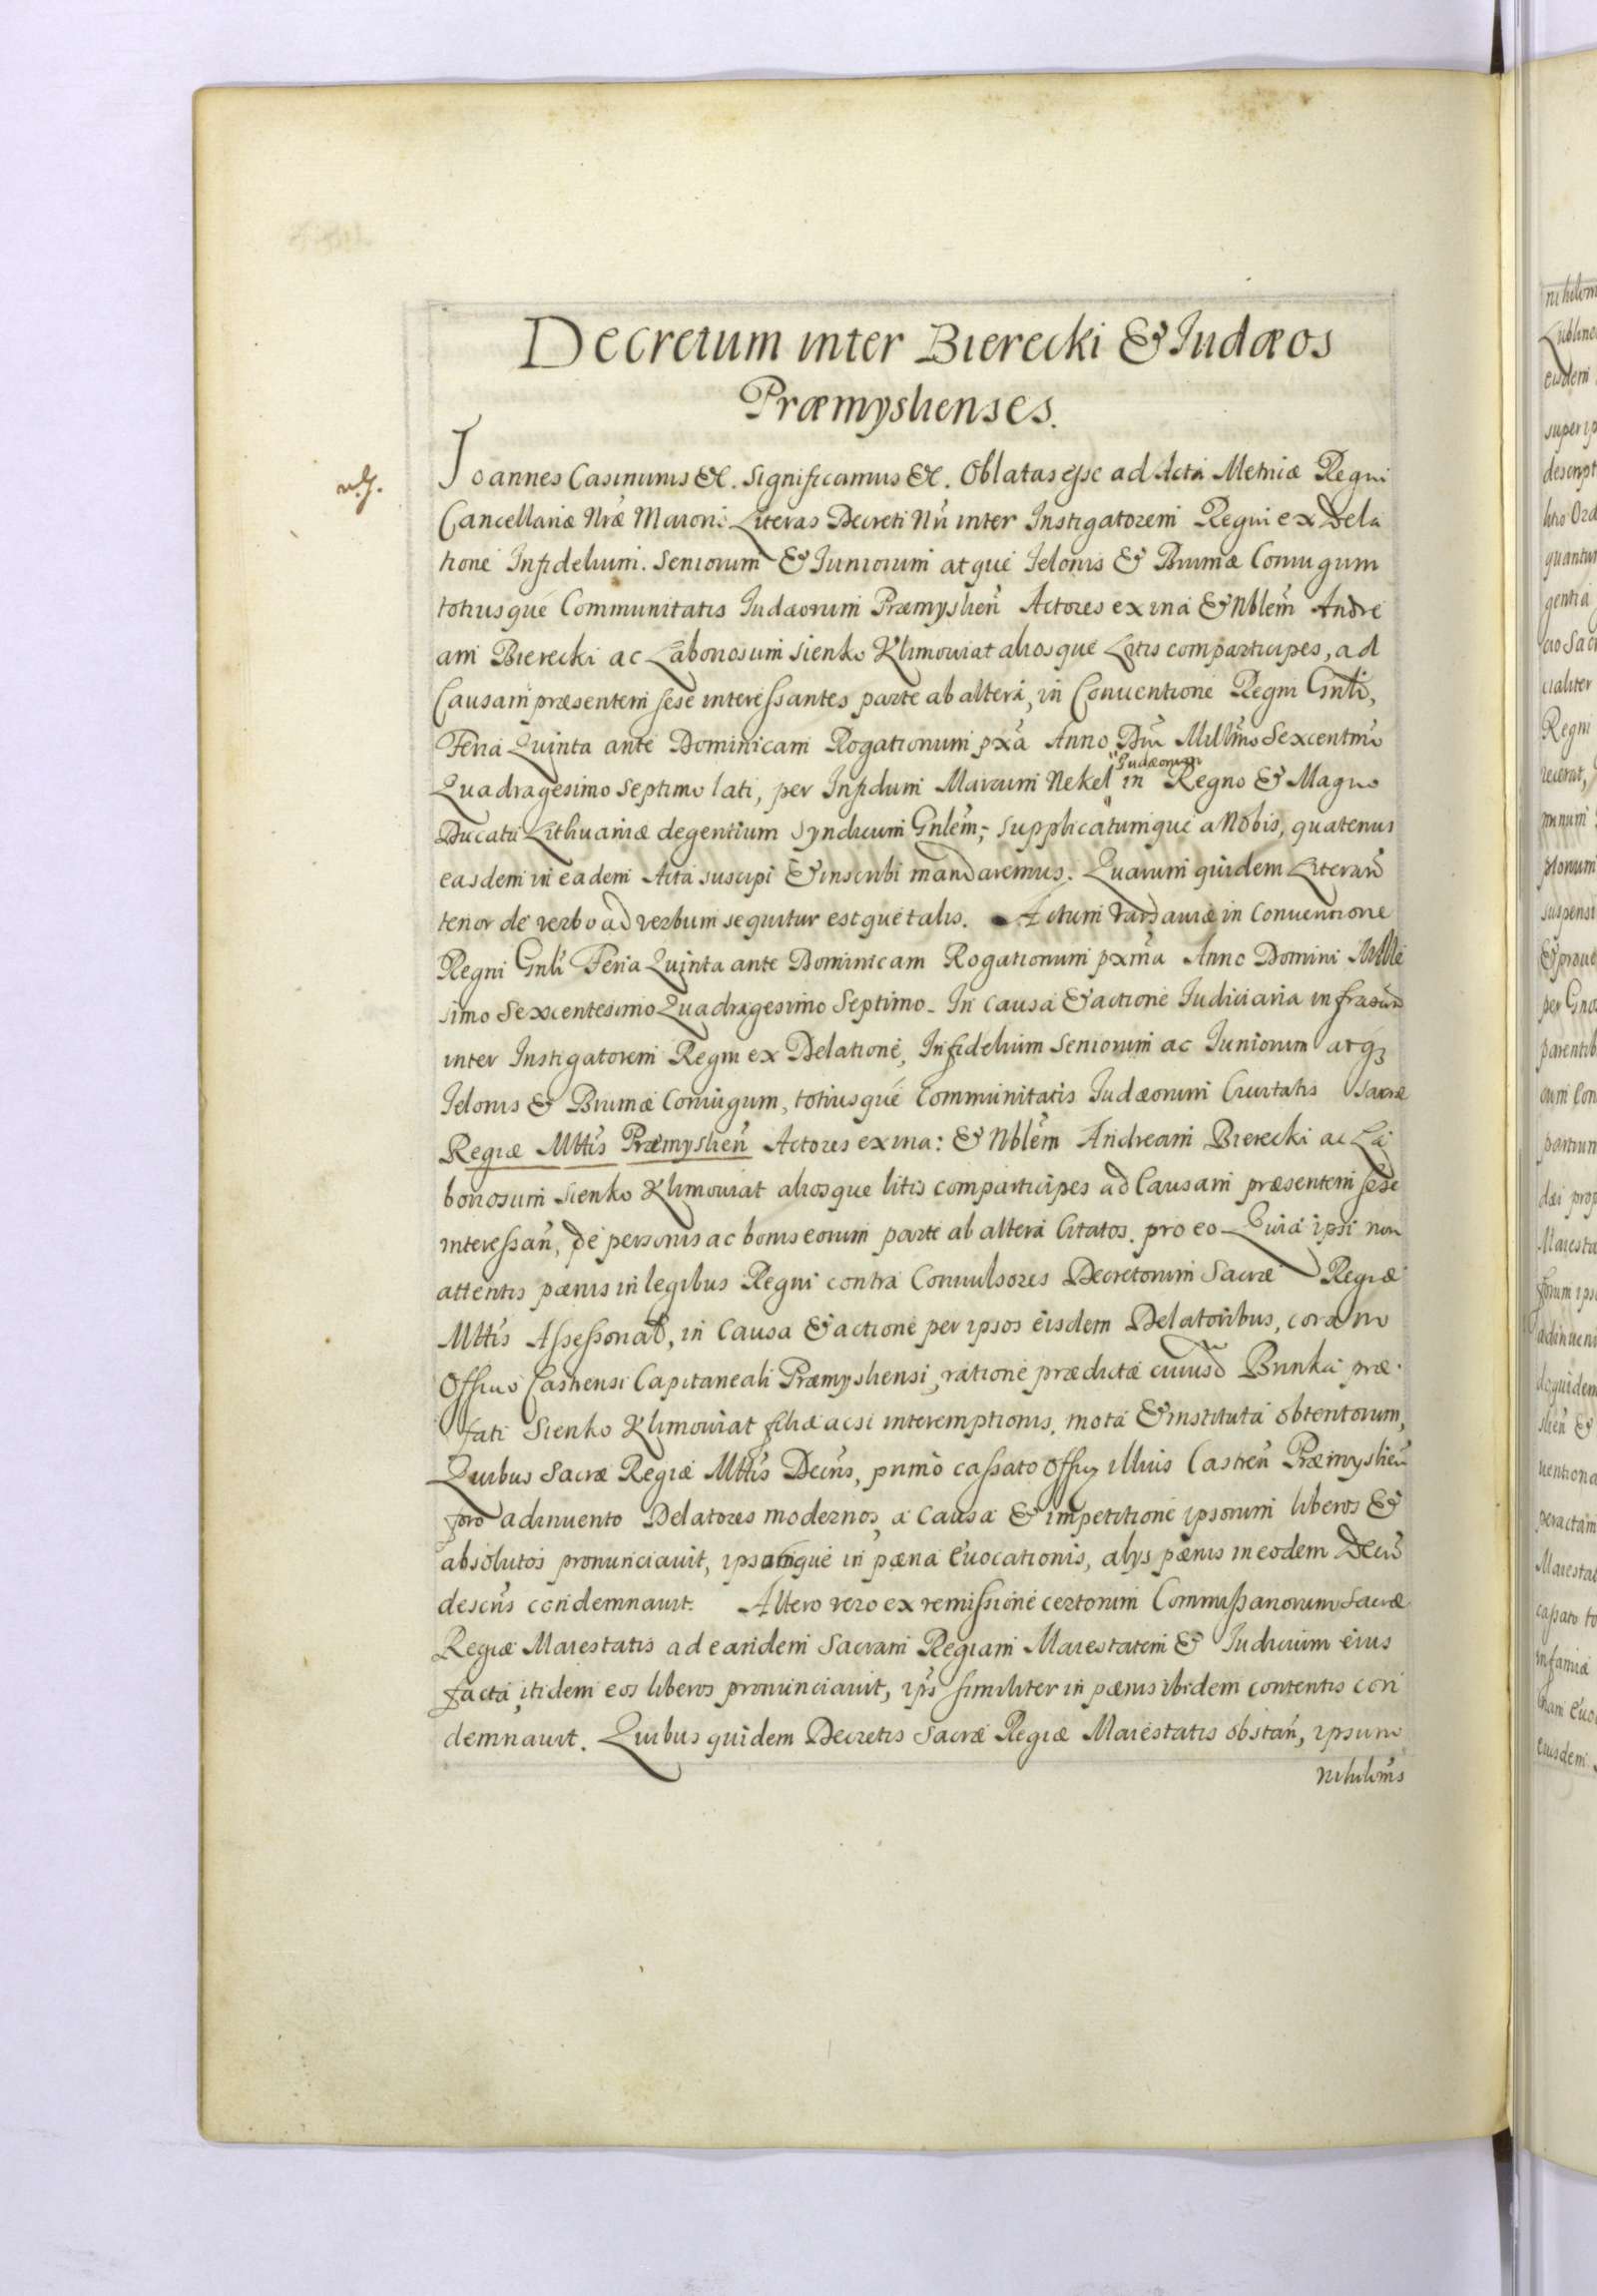 Decretum inter Bierecki & Iudæos
Præmyslienses.
Ioannes Casimirus &c. Significamus &c. Oblatas esse ad Acta Metricæ Regni
Cancellariæ Nr̃æ Maioris Literas Decreti Nr̃i inter Instigatorem Regni ex Dela
tione Infidelium. Seniorum & Iuniorum atque Ielonis & Brumæ Coniugum
totiusque Communitatis Iudæorum Præmyslien̄ Actores ex una & Nblem̃ Andre
am Bierecki ac Laboriosum Sienko Klimowiat aliosque Litis comparticipes, ad
Causam præsentem sese interessantes parte ab altera, in Conuentione Regni Gnli,
Feria Quinta ante Dominicam Rogationum pxã Anno Dni Millmo Sexcentmo
Quadragesimo Septimo lati, per Infidum Marcum Nekel Iudæorum in Regno & Magno
Ducatu Lithuaniæ degentium Syndicum Gnlem̃; supplicatumque a Nobis, quatenus
easdem in eadem Acta suscipi & inscribi mandaremus. Quarum quidem Literarū
tenor de verbo ad verbum sequitur estque talis. Actum Varsauiæ in Conuentione
Regni Gnli Feria Quinta ante Dominicam Rogationum pxma Anno Domini Mille
simo Sexcentesimo Quadragesimo Septimo. In causa & actione Iudiciaria infrascr̃
inter Instigatorem Regni ex Delatione, Infidelium Seniorum ac Iuniorum atq3
Ielonis & Brumæ Coniugum, totiusque Communitatis Iudæorum Ciuitatis Sacræ
Regiæ Mttis Præmyslien̄ Actores ex una: & Nblem̃ Andream Bierecki ac La
boriosum Sienko Klimowiat aliosque litis comparticipes ad Causam præsentem sese
interessan̄, de personis ac bonis eorum parte ab altera Citatos. pro eo Quia ipsi non
attentis pænis in legibus Regni contra Conuulsores Decretorum Sacræ Regiæ
Mttis Assessorial, in Causa & actione per ipsos eisdem Delatoribus, coram
Officio Castrensi Capitaneali Præmysliensi, ratione prædictæ cuiusd Brinka præ
fati Sienko Klimowiat filiæ acsi interemptionis, mota & instituta obtentorum,
Quibus Sacræ Regiæ Mttis Decr̃is, primo cassato Officÿ illius Castren̄ Præmyslien̄
foro adinuento Delatores modernos, a Causa & impetitione ipsorum liberos &
absolutos pronunciauit, ipsumque in pæna euocationis, alijs pænis in eodem Decr̃o
descr̃is condemnauit. Altero vero ex remissione certorum Commissariorum Sacræ
Regiæ Maiestatis ad eandem Sacram Regiam Maiestatem & Iudicium eius
facta, itidem eos liberos pronunciauit, ip̃s similiter in pænis ibidem contentis con
demnauit. Quibus quidem Decretis Sacræ Regiæ Maiestatis obstan̄, ipsum
nihilom̃s